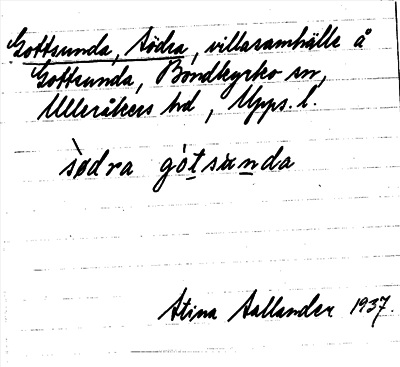 Gottsunda, Södra, villasamhälle å
Gottsunda, Bondkyrko sn,
Ulleråkers hd, Upps. l.
sødra gòtsùnda
Stina Aallander 1937.